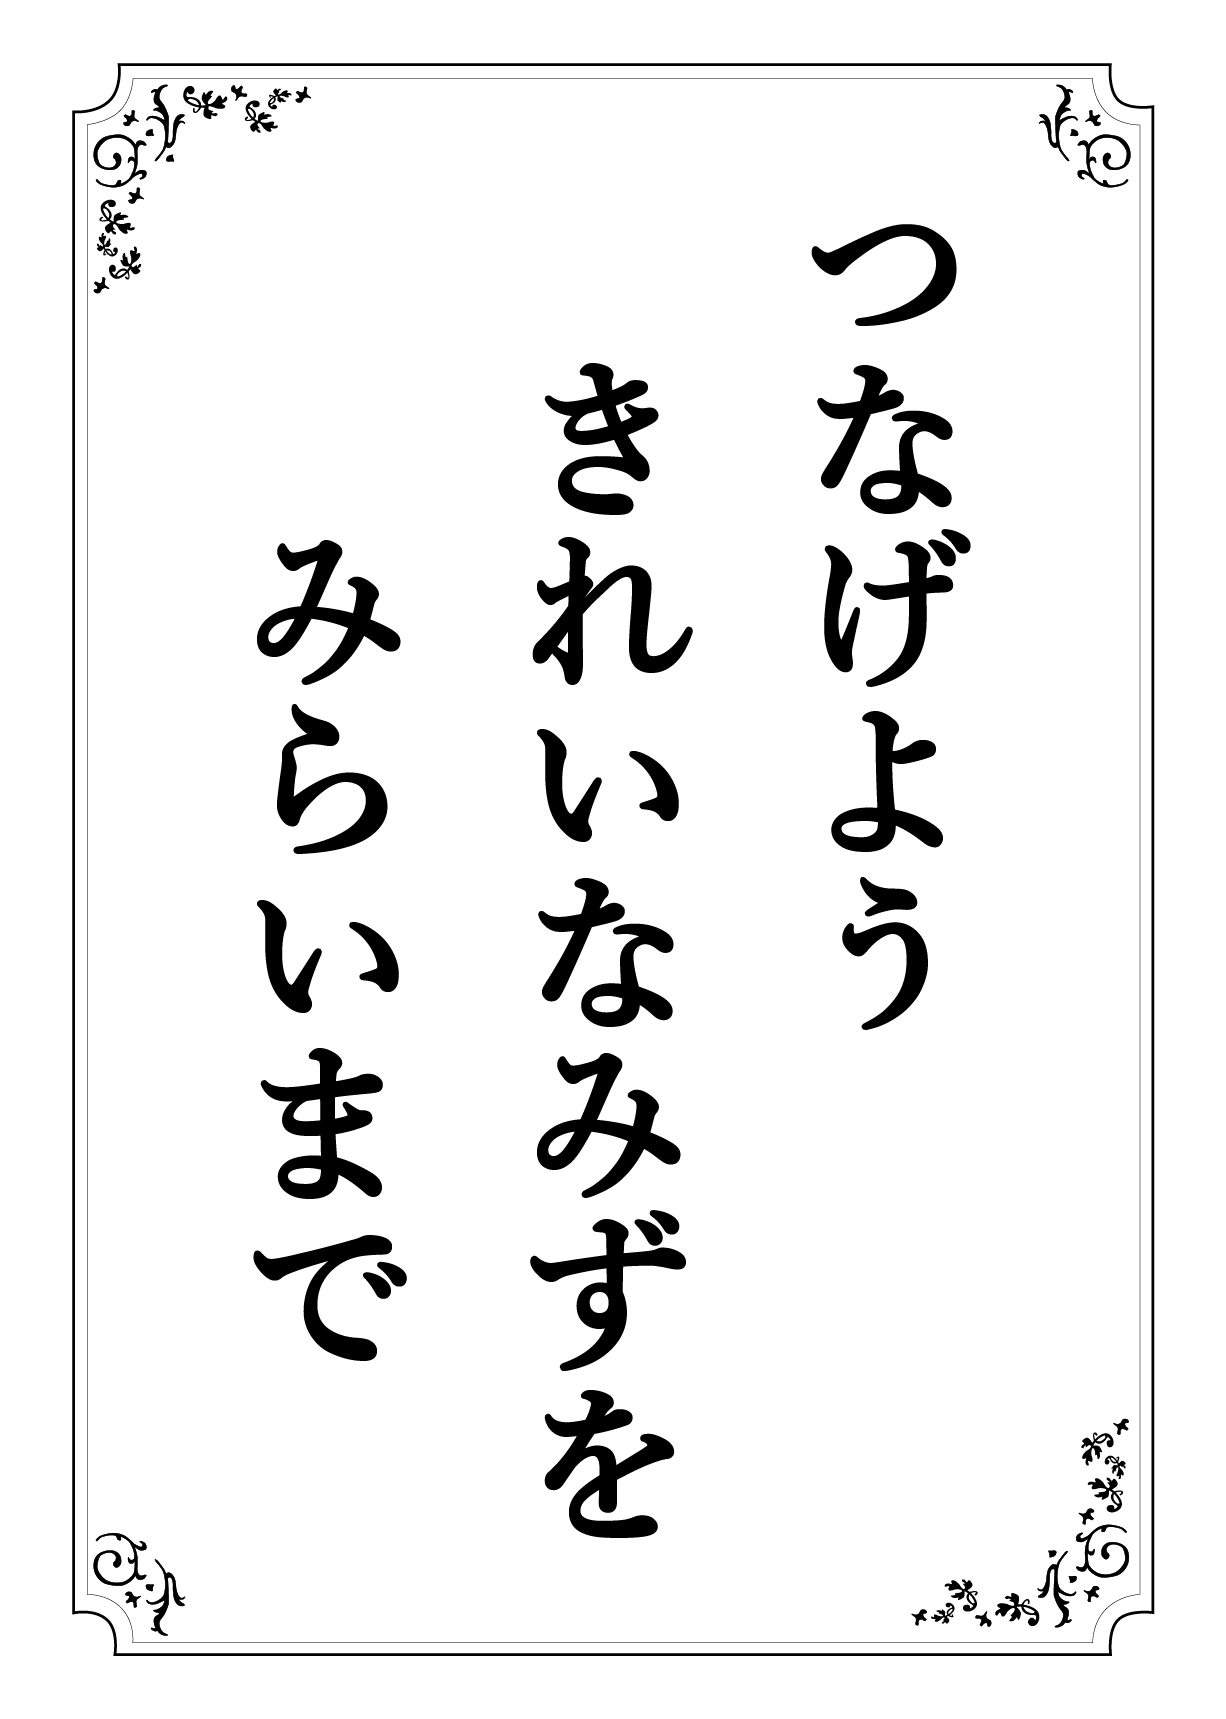 つなげよう
きれいなみずを
みらいまで